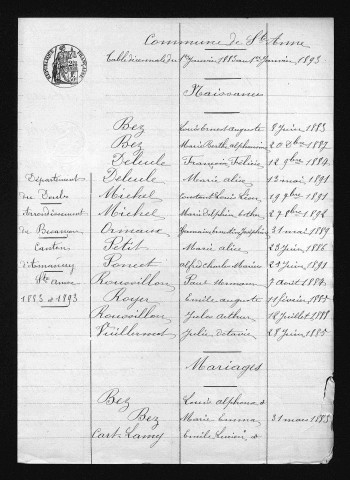 Commune de Ste Anne
Table décennale du 1er Janvier 1883 au 1er Janvier 1893
Naissances
Bez Louis Ernest auguste 8 Juin 1883
Bez Marie Berthe alphonsine 20 8bre 1887
Deleule François Félicien 12 9bre 1884
Deleule Marie alice 13 mai 1891
Michel Constant Louis Léon 19 9bre 1891
Michel Marie Delphine 27 8bre 1892
Joséphine 31 mai 1889
Petit Marie alice 23 Juin 1886
Poncet alfred Charles 21 Juin 1891
Rouvillon Paul 7 août 1884
Royer Emile auguste 11 février 1885
Rouvillon Jules Arthur 12 Juillet 1888
Vuillermot Julie 28 Juin 1885
Département
du Doubs
Arrondissement
de Besançon
Canton
d'Amancey
Ste anne
1883 à 1893
Mariages
Bez Louis alphonse &
Bez Marie Emma 31 mars 1883
Cart-Lamy Emile &